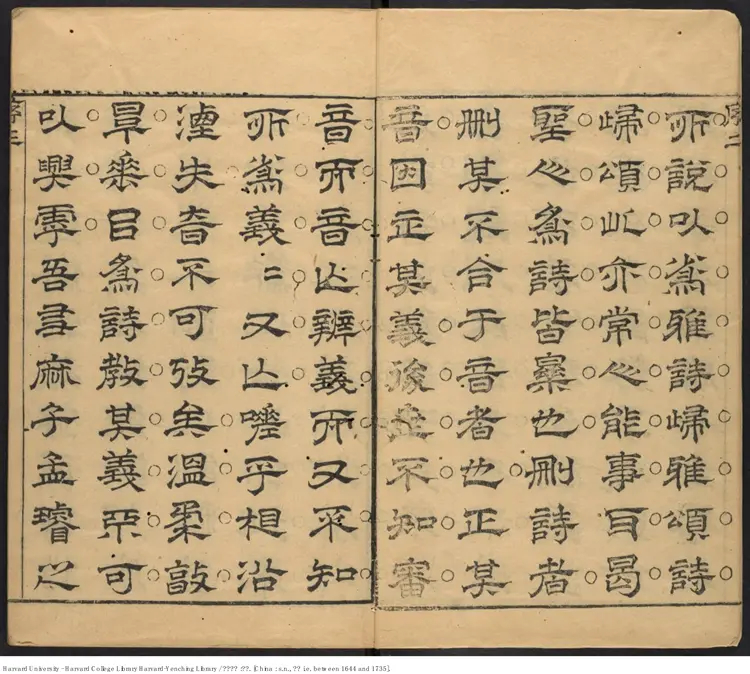 序二
所說以為雅詩歸雅頌詩
歸頌此亦常人能事曰曷
聖人為詩皆也刪詩者
刪其不合于音者也正其
音因正其義後世不知審
音而音亡辨義而又不知
所為義〻又亡嗟乎相沿
湮失音不可攷矣溫柔敦
厚垂㠯為詩教其義亦可
以興虖吾友麻子孟璿之
序三
Harvard University - Harvard College Library Harvard-Yenching Library / ???? :??. [China : s.n., ?? i.e. between 1644 and 1735].